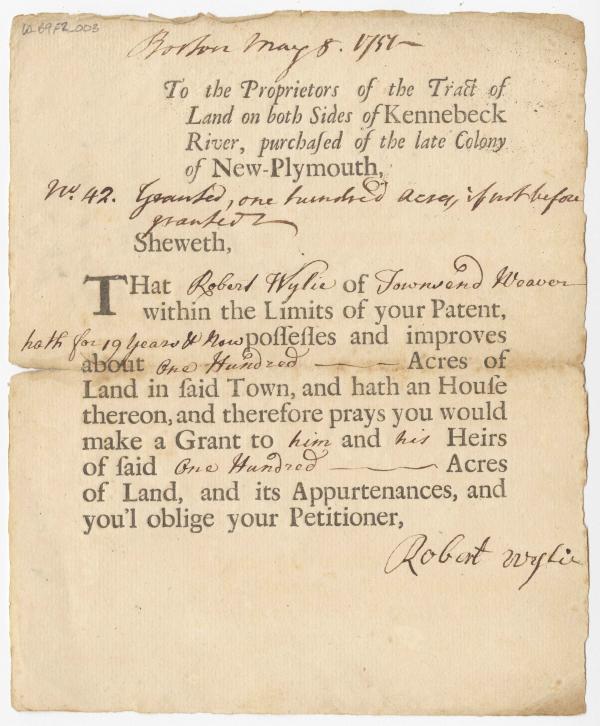 Boston May 8. 1751
To the Proprietors of the Tract of
Land on both Sides of Kennebeck
River, purchaſed of the late Colony
of New-Plymouth,
No. 42. Granted, one hundred Acres, if not before
granted
Sheweth,
THat Robert Wylie of Townsend Weaver
within the Limits of your Patent,
hath for 19 Years & Now poſſeſſes and improves
about One Hundred Acres of
Land in ſaid Town, and hath an Houſe
thereon, and therefore prays you would
make a Grant to him and his Heirs
of ſaid One Hundred Acres
of Land, and its Appurtenances, and
you'l oblige your Petitioner,
Robert Wylie